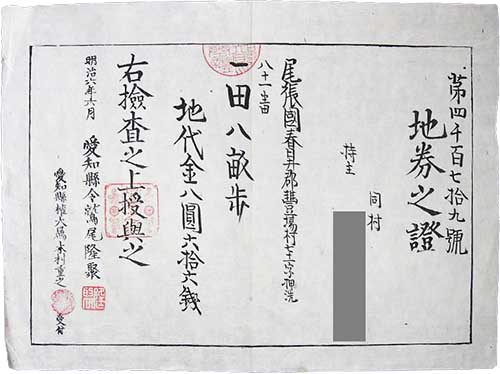 第四千百七拾九號
地券之證
同村
持主
尾張國春日井郡豐場村
八十一番
一田八畝歩
地代金八圓六拾六錢
右檢査之上授與之
明治六年六月
愛知縣令鷲尾隆聚
愛知縣權大属木利重之